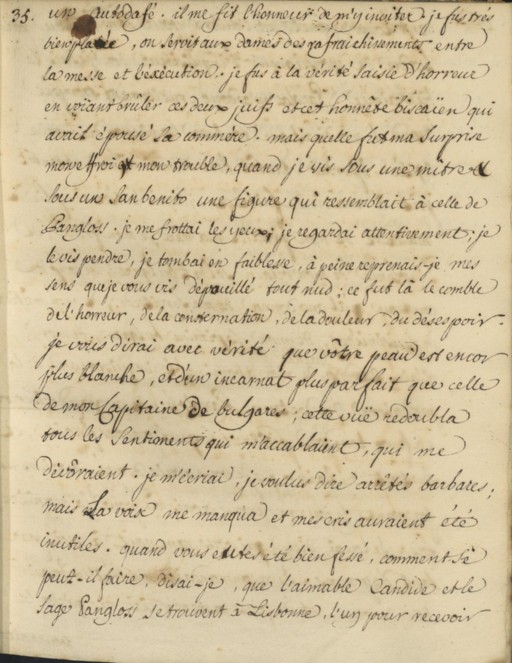 35. un autodafé. il me fit l'honneur de m'y inviter. je fus très
bien placée, on servit aux dames des rafraichissements entre
la messe et l'éxécution. je fus à la vérité saisie d'horreur
en voiant brûler ces deux juifs et cet honnête biscaïen qui
avait épousé sa commére. mais quelle fut ma surprise
mon effroi et mon trouble, quand je vis sous une mitre et
sous un sanbenito une figure qui ressemblait à celle de
Pangloss. je me frottai les yeux; je regardai attentivement; je
le vis pendre, je tombai en faiblesse, à peine reprenais-je mes
sens que je vous vis dépouillé tout nud; ce fut là le comble
de l'horreur, de la consternation, de la douleur, du désespoir.
je vous dirai avec vérité que vôtre peau est encor
plus blanche, et d'un incarnat plus parfait que celle
de mon Capitaine de bulgares; cette vuë redoubla
tous les sentiments qui m'accablaient, qui me
dévôraient. je m'écriai, je voulus dire arrêtés barbares;
mais La voix me manqua et mes cris auraient été
inutiles. quand vous eutes été bien fessé, comment se
peut-il faire, disai-je, que l'aimable Candide et le
sage Pangloss se trouvent à Lisbonne, l'un pour recevoir